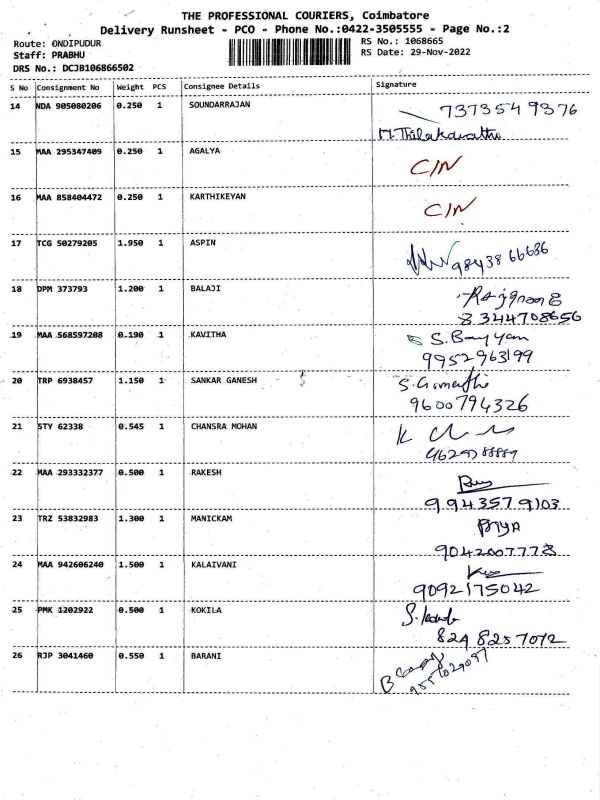 THE PROFESSIONAL COURIERS, Coimbatore
Delivery Runsheet - PCO - Phone No.:0422-3505555 - Page No.:2
Route: ONDIPUDUR
RS No.: 1068665
Staff: PRABHU
RS Date: 29-Nov-2022
DRS No.: DCJB106866502
S No Consignment No Weight PCS Consignee Details Signature
14 NDA 905080206 0.250 1 SOUNDARRAJAN 7373549376
15 MAA 295347409 0.250 1 AGALYA C/N
16 MAA 858404472 0.250 1 KARTHIKEYAN C/N
17 TCG 50279205 1.950 1 ASPIN 9843866686
18 DPM 373793 1.200 1 BALAJI
8344708656
19 MAA 568597208 0.190 1 KAVITHA
9952963199
20 TRP 6938457 1.150 1 SANKAR GANESH
9600794326
21 STY 62338 0.545 1 CHANSRA MOHAN K
22 MAA 293332377 0.500 1 RAKESH
9943579103
23 TRZ 53832983 1.300 1 MANICKAM Priya
9042007778
24 MAA 942606240 1.500 1 KALAIVANI
9092175042
25 PMK 1202922 0.500 1 KOKILA
8248257072
26 RJP 3041460 0.550 1 BARANI